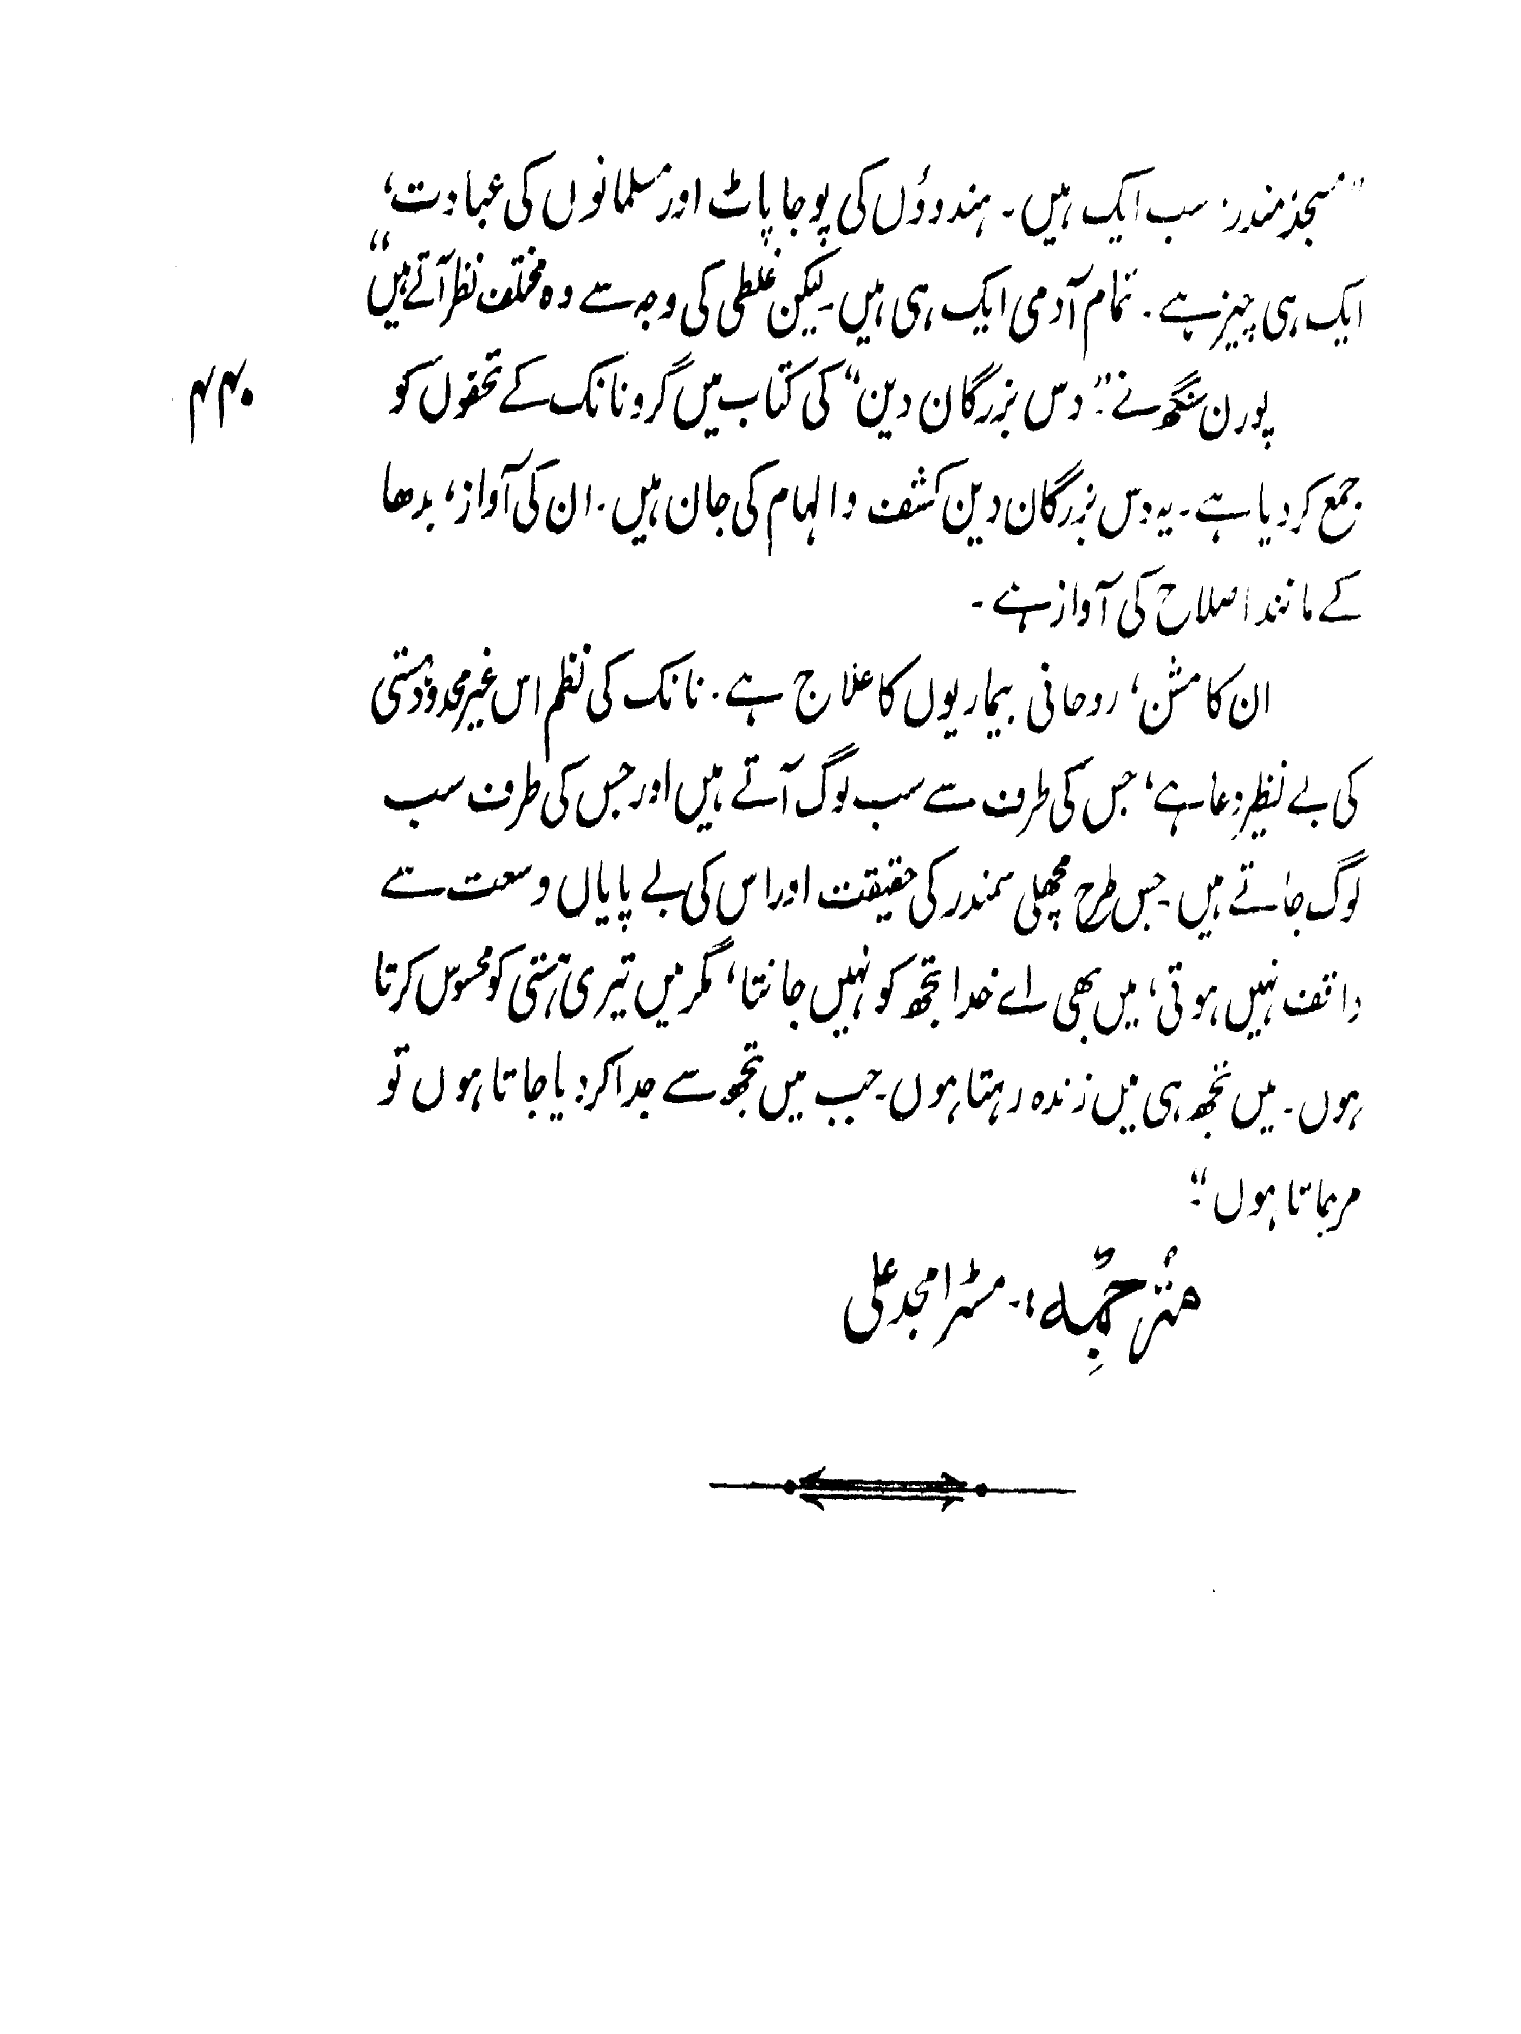 "مسجد، مندر، سب ایک ہیں۔ ہندوؤں کی پوجا پاٹ اور مسلمانوں کی عبادت،
ایک ہی چیز ہے۔ تمام آدمی ایک ہی ہیں۔ لیکن غلطی کی وجہ سے وہ مختلف نظر آتے ہیں"
پورن سنگھ نے "دس بزرگان دین" کی کتاب میں گرو نانک کے تحفوں کو
۴۴۰
جمع کر دیا ہے۔ یہ دس بزرگان دین کشف و الہام کی جان ہیں۔ ان کی آواز، بدھا
کے مانند اصلاح کی آواز ہے۔
ان کا مشن، روحانی بیماریوں کا علاج ہے۔ نانک کی نظم اس غیر محدود ہستی
کی بے نظیر دعا ہے، جس کی طرف سے سب لوگ آتے ہیں اور جس کی طرف سب
لوگ جاتے ہیں۔ جس طرح مچھلی سمندر کی حقیقت اور اس کی بے پایاں وسعت سے
واقف نہیں ہوتی، میں بھی اے خدا تجھ کو نہیں جانتا، مگر میں تیری ہستی کو محسوس کرتا
ہوں۔ میں تجھ ہی میں زندہ رہتا ہوں۔ جب میں تجھ سے جدا کر دیا جاتا ہوں تو
مر جاتا ہوں۔"
مُترجِمّہ:۔ مسٹر امجد علی